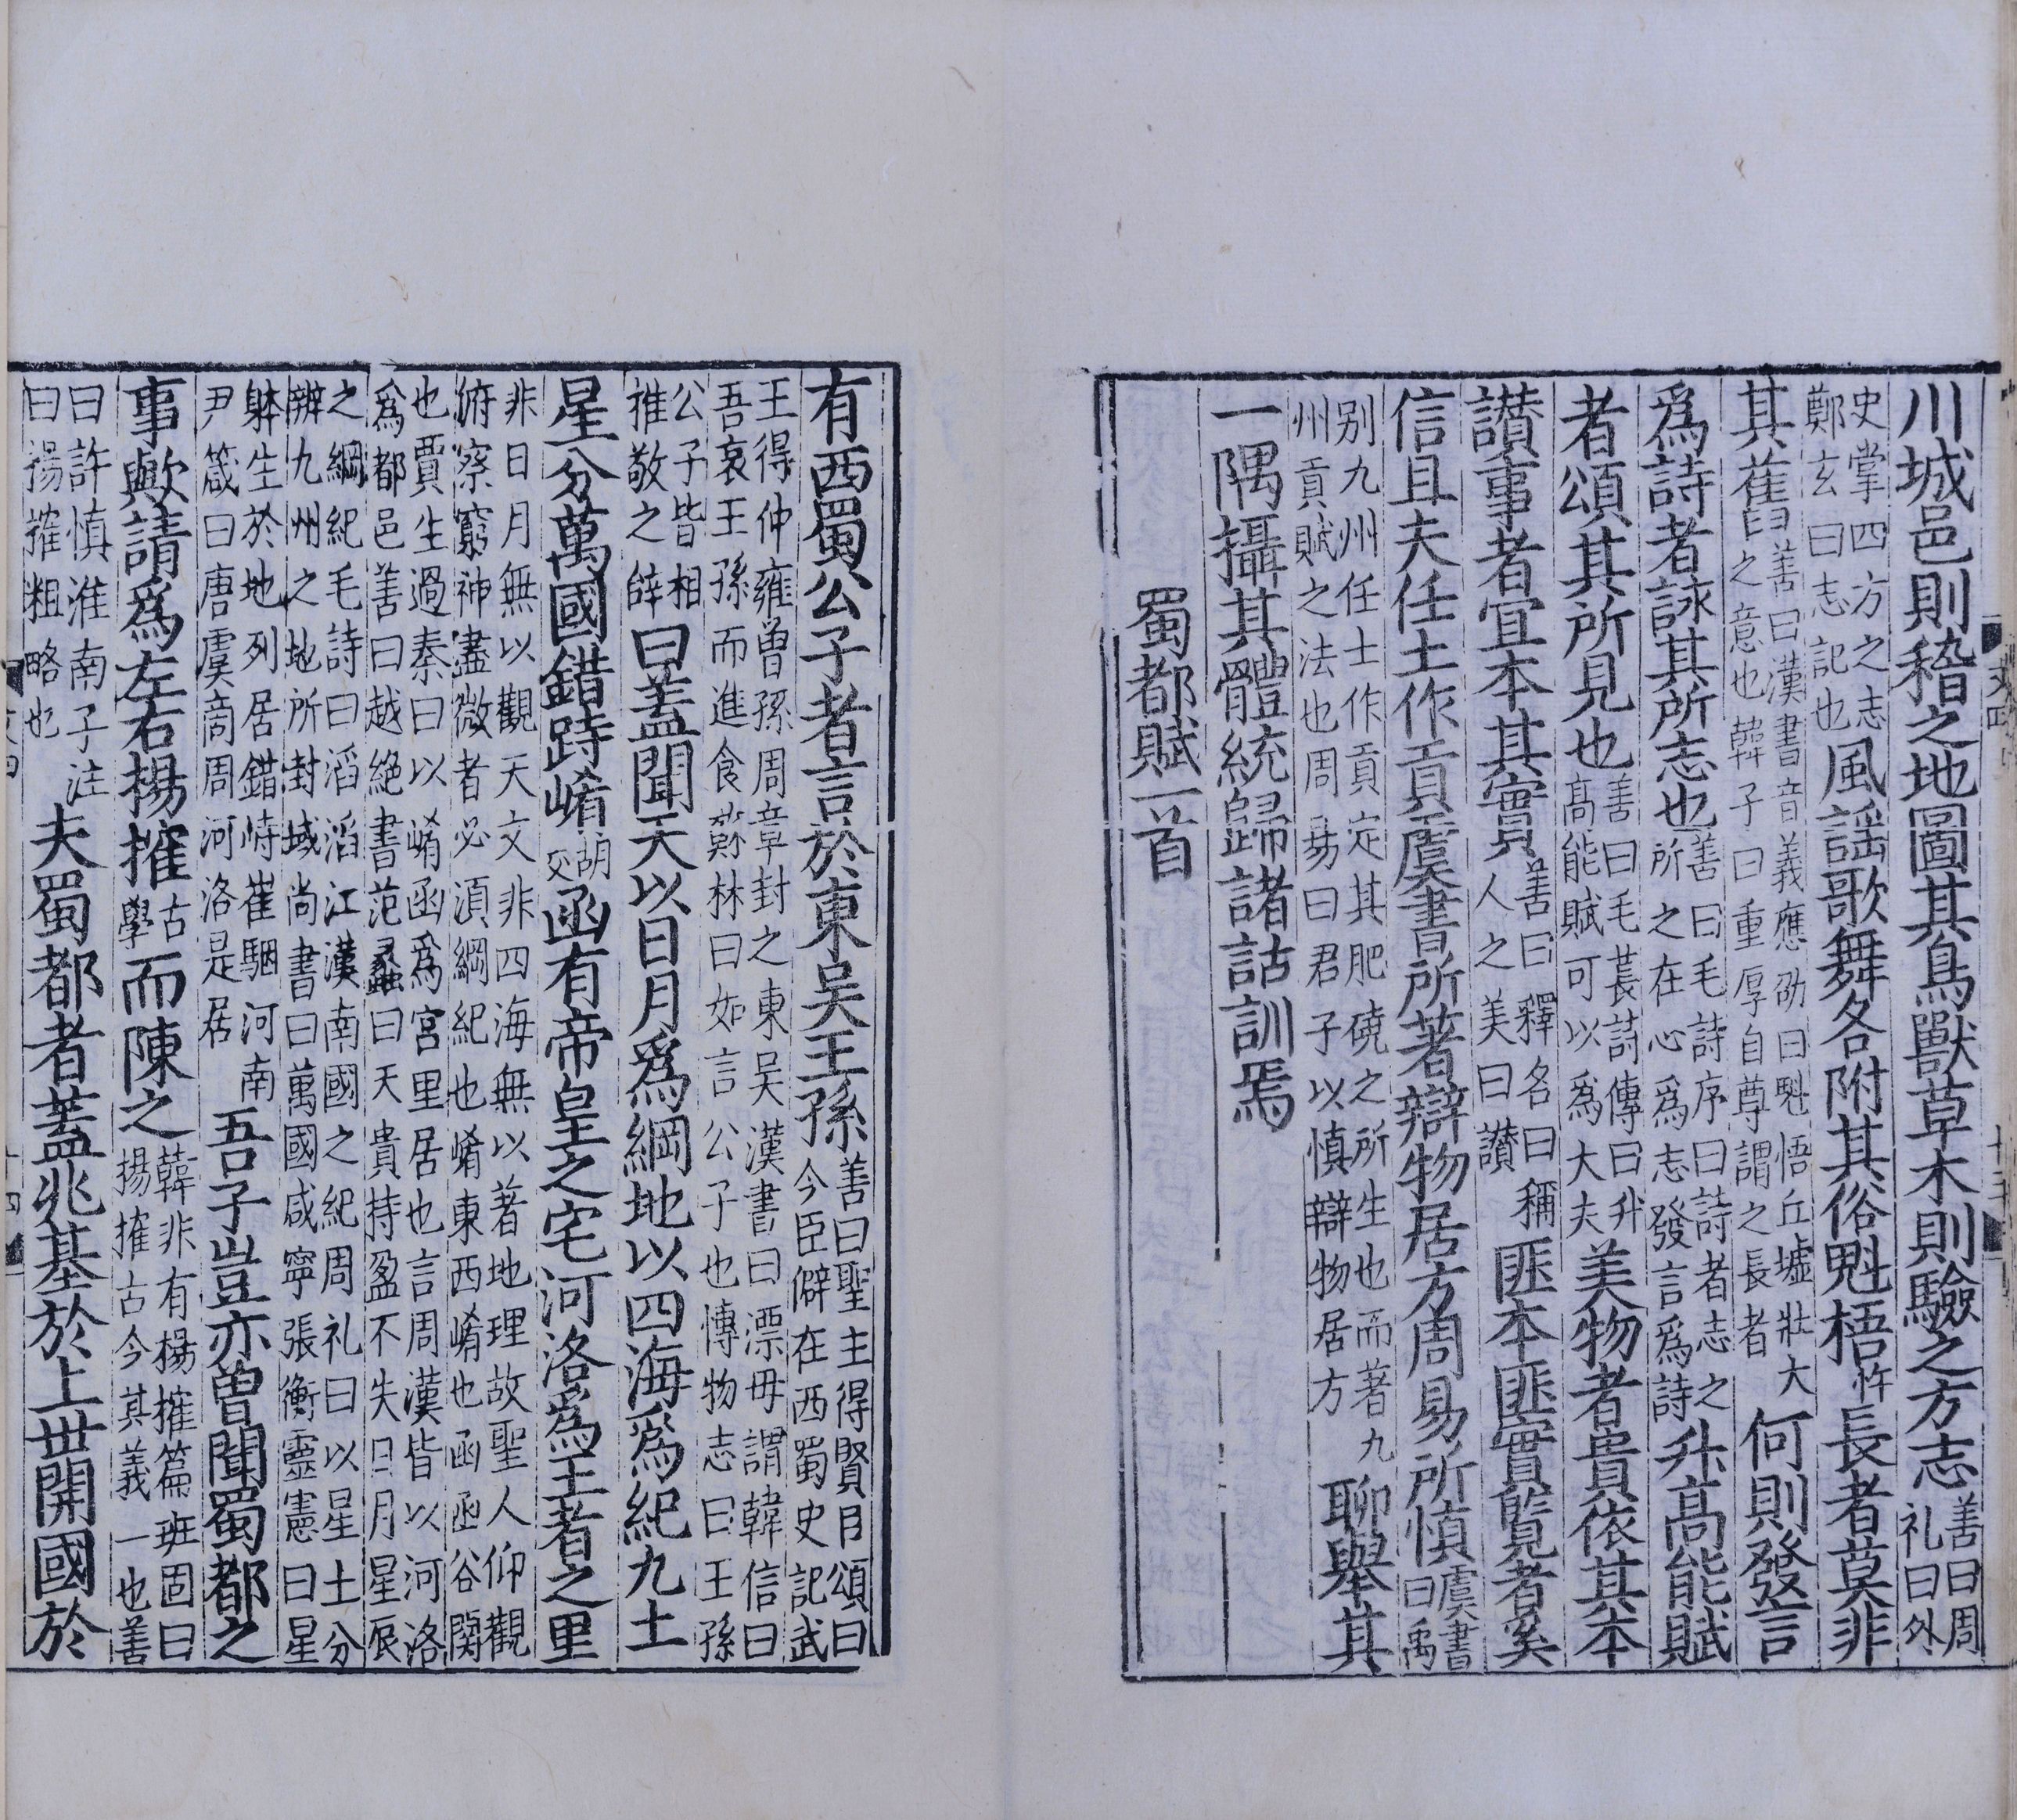 川城邑則稽之地圖其鳥獸草木則驗之方志善曰周礼曰外
史掌四方之志鄭玄曰志記也風謡歌舞各附其俗魁梧忤長者莫非
其舊善曰漢書音義應劭曰魁悟丘墟壯大之意也韓子曰重厚自尊謂之長者何則發言
爲詩者詠其所志也善曰毛詩序曰詩者志之所之在心爲志發言爲詩升高能賦
者頌其所見也善曰毛萇詩傳曰升高能賦可以爲大夫美物者貴依其本
讃事者宜本其實善曰釋名曰稱人之美曰讃匪本匪實覽者奚
信且夫任土作貢虞書所著辯物居方周易所慎虞書曰禹
别九州任土作貢定其肥磽之所生也而著九州貢賦之法也周昜曰君子以慎辯物居方聊舉其
一隅攝其體統歸諸詁訓焉
蜀都賦一首
有西蜀公子者言於東吴王孫善曰聖主得賢臣頌曰今臣僻在西蜀史記武
王得仲雍曽孫周章封之東吴漢書曰漂毋謂韓信曰吾哀王孫而進食蘇林曰如言公子也博物志曰王孫
公子皆相推敬之辞曰蓋聞天以日月爲綱地以四海爲紀九土
星分萬國錯跱崤胡交函有帝皇之宅河洛爲王者之里
非日月無以觀天文非四海無以著地理故聖人仰觀俯察窮神盡微者必湏綱紀也崤東西崤也函函谷関
也賈生過秦曰以崤函爲宫里居也言周漢皆以河洛爲都邑善曰越絶書范蠡曰天貴持盈不失日月星辰
之綱紀毛詩曰滔滔江漢南國之紀周礼曰以星土分辨九州之地所封域尚書曰萬國咸寧張衡靈憲曰星
躰生於地列居錯峙崔駰河南尹箴曰唐虞啇周河洛是居吾子豈亦曽聞蜀都之
事歟請爲左右揚搉古學而陳之韓非有楊搉篇班固曰揚搉古今其義一也善
曰許慎淮南子注曰揚搉粗略也夫蜀都者蓋兆基於上世開國於